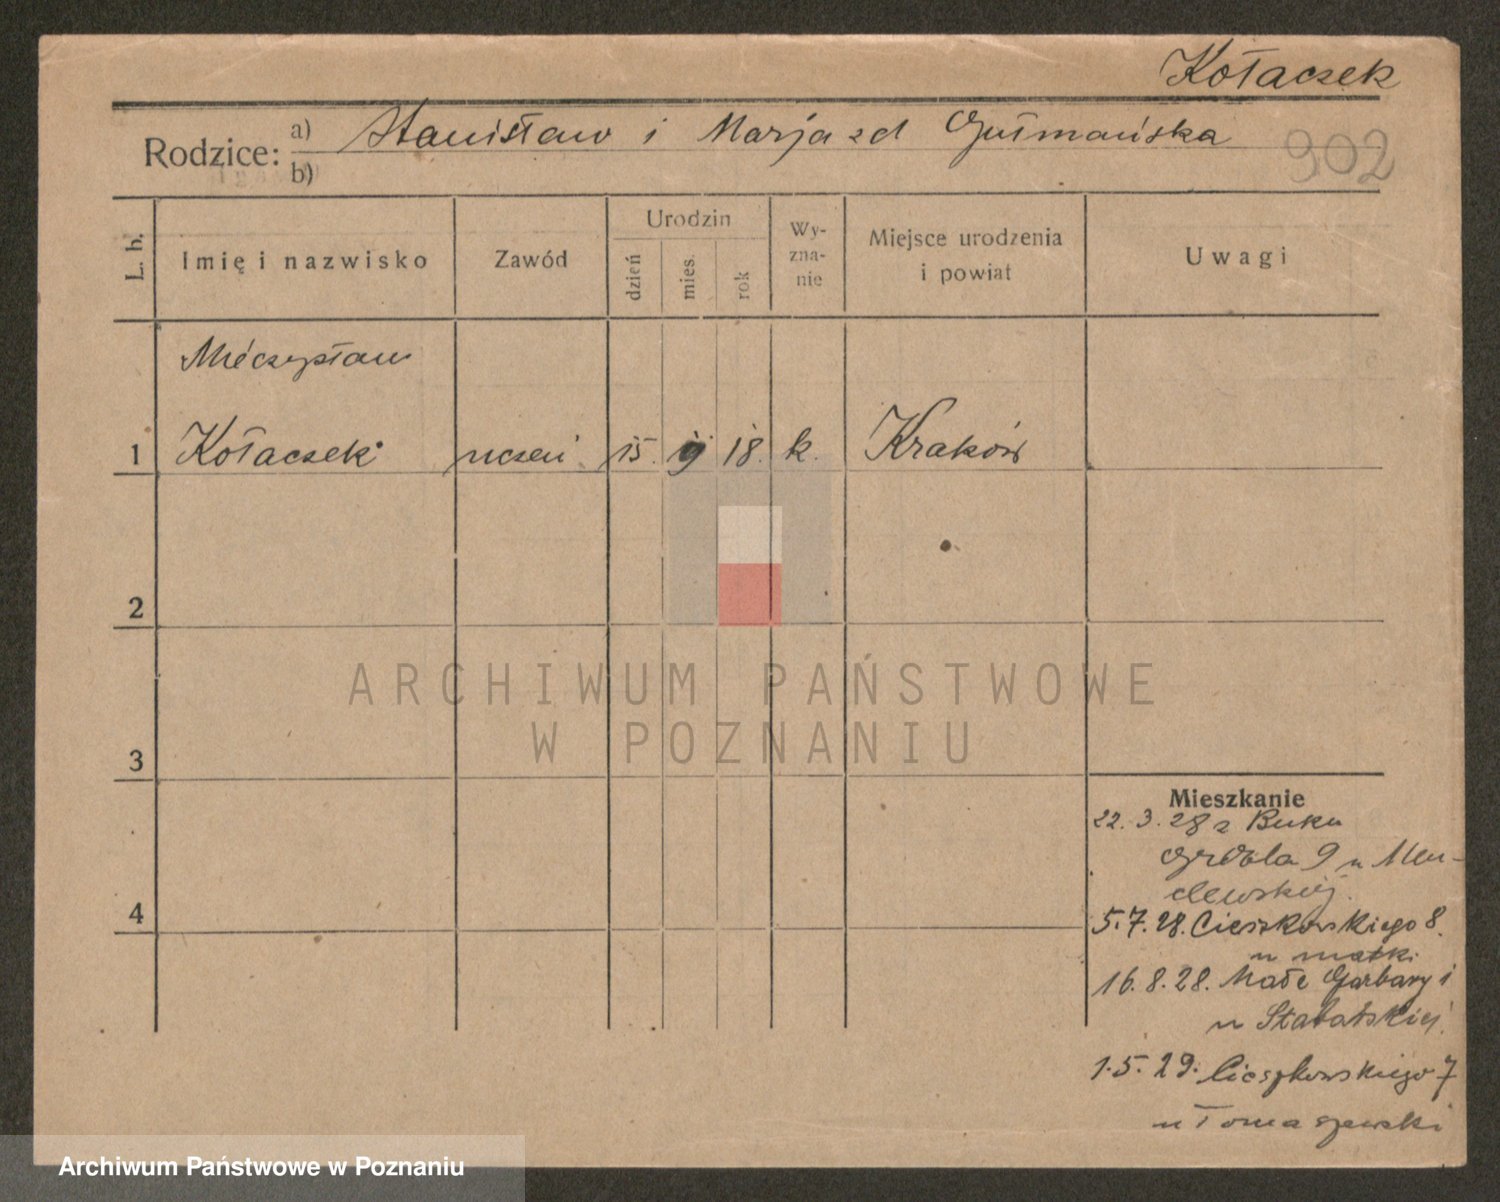 Kołaczek
Rodzice: a) Stanisław i Marja zd Gutmańska
b)
902
L. b.
Imię i nazwisko
Zawód
Urodzin
dzień
mies.
rok
Wy-
zna-
nie
Miejsce urodzenia
i powiat
Uwagi
Mieczysław
1 Kołaczek uczeń 15. 9 18. k. Kraków
2
ARCHIWUM PAŃSTWOWE
W POZNANIU
3
Mieszkanie
22. 3. 28 z Buku
Grobla 9 u Men-
clewskiej.
4
5.7.28. Cieszkowskiego 8.
u matki.
16.8.28. Małe Garbary 1
u
1.5.29. Cieszkowskiego 7
u Tomaszewski
Archiwum Państwowe w Poznaniu